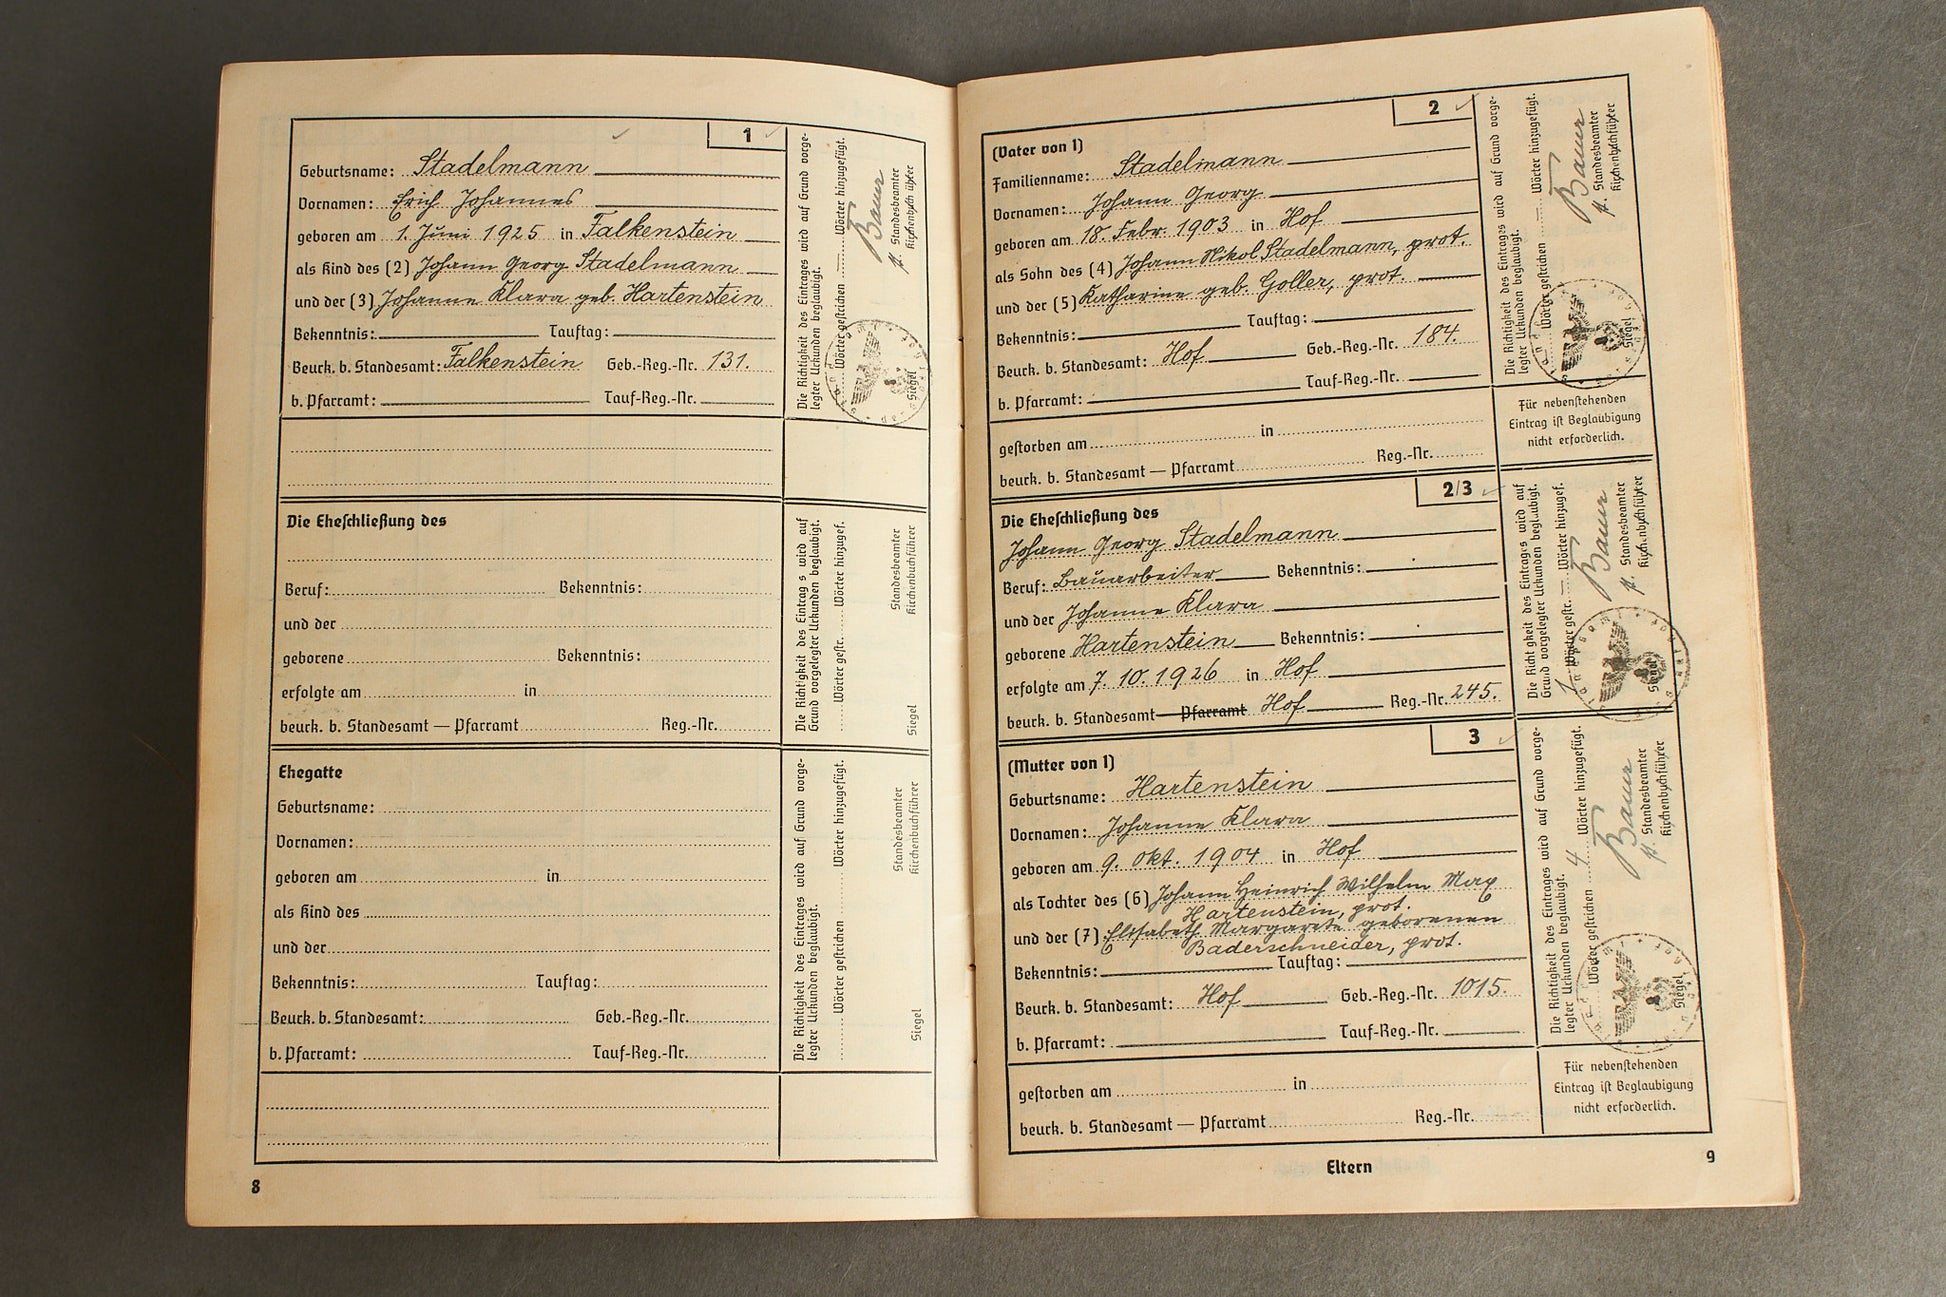 1
Geburtsname: Stadelmann
Vornamen: Erich Johannes
geboren am 1. Juni 1925 in Falkenstein
als Kind des (2) Johann Georg Stadelmann
und der (3) Johanne Klara geb. Hartenstein
Bekenntnis: Tauftag:
Beurk. b. Standesamt: Falkenstein Geb.-Reg.-Nr. 131.
b. Pfarramt: Tauf-Reg.-Nr.
Die Richtigkeit des Eintrages wird auf Grund vorge-
legter Urkunden beglaubigt.
Wörter gestrichen — Wörter hinzugefügt.
Bauer
Standesbeamter
Kirchenbuchführer
Siegel
Die Eheschließung des
Beruf: Bekenntnis:
und der
geborene Bekenntnis:
erfolgte am in
beurk. b. Standesamt — Pfarramt Reg.-Nr.
Die Richtigkeit des Eintrages wird auf
Grund vorgelegter Urkunden beglaubigt.
Wörter gestr. Wörter hinzugef.
Standesbeamter
Kirchenbuchführer
Siegel
Ehegatte
Geburtsname:
Vornamen:
geboren am in
als Kind des
und der
Bekenntnis: Tauftag:
Beurk. b. Standesamt: Geb.-Reg.-Nr.
b. Pfarramt: Tauf-Reg.-Nr.
Die Richtigkeit des Eintrages wird auf Grund vorge-
legter Urkunden beglaubigt.
Wörter gestrichen Wörter hinzugefügt.
Standesbeamter
Kirchenbuchführer
Siegel
8
2
(Vater von 1)
Familienname: Stadelmann
Vornamen: Johann Georg
geboren am 18. Febr. 1903 in Hof
als Sohn des (4) Johann Nikol Stadelmann, prot.
und der (5) Katharine geb. Goller, prot.
Bekenntnis: Tauftag:
Beurk. b. Standesamt: Hof Geb.-Reg.-Nr. 184.
b. Pfarramt: Tauf-Reg.-Nr.
gestorben am in
beurk. b. Standesamt — Pfarramt Reg.-Nr.
Die Richtigkeit des Eintrages wird auf Grund vorge-
legter Urkunden beglaubigt.
Wörter gestrichen — Wörter hinzugefügt.
Bauer
Standesbeamter
Kirchenbuchführer
Siegel
Für nebenstehenden
Eintrag ist Beglaubigung
nicht erforderlich.
2/3
Die Eheschließung des
Johann Georg Stadelmann
Beruf: Bauarbeiter Bekenntnis:
und der Johanne Klara
geborene Hartenstein Bekenntnis:
erfolgte am 7. 10. 1926 in Hof
beurk. b. Standesamt — Pfarramt Hof Reg.-Nr. 245.
Die Richtigkeit des Eintrages wird auf
Grund vorgelegter Urkunden beglaubigt.
1 Wörter gestr. — Wörter hinzugef.
Bauer
Standesbeamter
Kirchenbuchführer
Siegel
3
(Mutter von 1)
Geburtsname: Hartenstein
Vornamen: Johanne Klara
geboren am 9. Okt. 1904 in Hof
als Tochter des (6) Johann Heinrich Wilhelm Max
Hartenstein, prot.
und der (7) Elisabeth Margarete geborenen
Baderschneider, prot.
Bekenntnis: Tauftag:
Beurk. b. Standesamt: Hof Geb.-Reg.-Nr. 1015.
b. Pfarramt: Tauf-Reg.-Nr.
gestorben am in
beurk. b. Standesamt — Pfarramt Reg.-Nr.
Die Richtigkeit des Eintrages wird auf Grund vorge-
legter Urkunden beglaubigt.
Wörter gestrichen 4 Wörter hinzugefügt.
Bauer
Standesbeamter
Kirchenbuchführer
Siegel
Für nebenstehenden
Eintrag ist Beglaubigung
nicht erforderlich.
Eltern
9